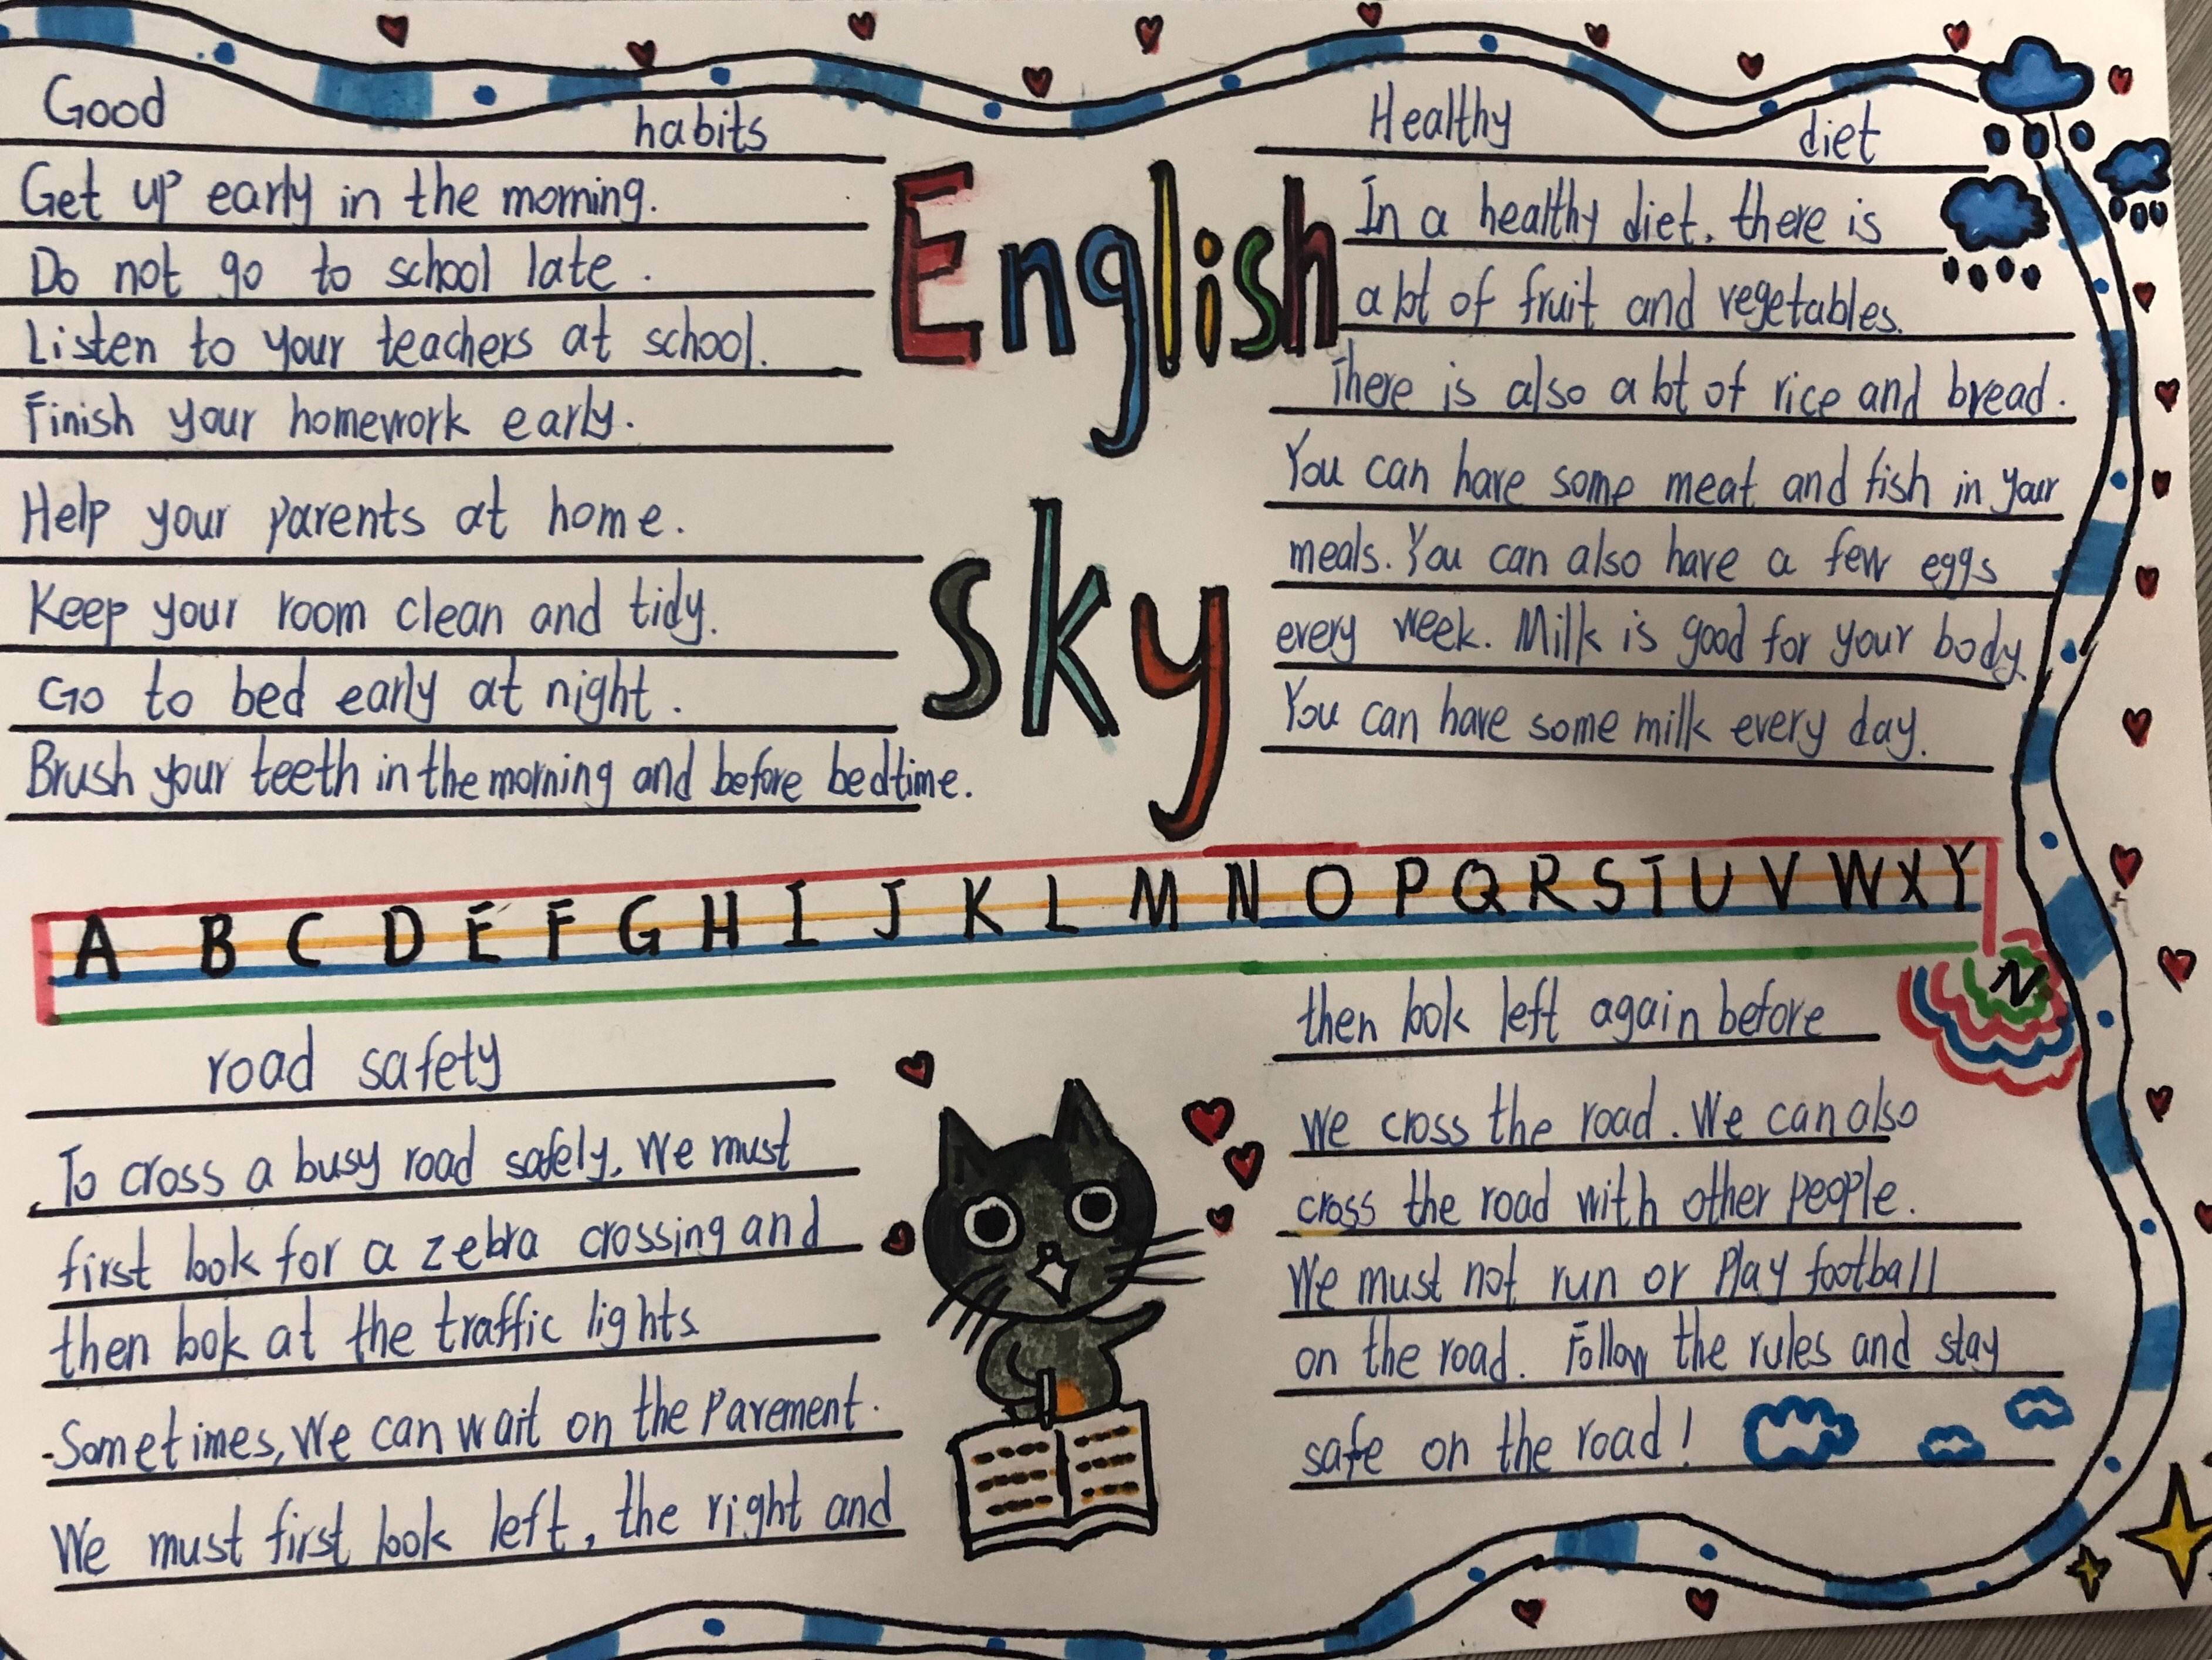 Good habits
Get up early in the morning.
Do not go to school late.
Listen to your teachers at school.
Finish your homework early.
Help your parents at home.
Keep your room clean and tidy.
Go to bed early at night.
Brush your teeth in the morning and before bedtime.
English
sky
Healthy diet
In a healthy diet, there is
a lot of fruit and vegetables.
There is also a lot of rice and bread.
You can have some meat and fish in your
meals. You can also have a few eggs
every week. Milk is good for your body.
You can have some milk every day.
A B C D E F G H I J K L M N O P Q R S T U V W X Y
N
road safety
To cross a busy road safely, we must
first look for a zebra crossing and
then look at the traffic lights
Sometimes, we can wait on the pavement.
We must first look left, the right and
then look left again before
we cross the road. We can also
cross the road with other people.
We must not run or play football
on the road. Follow the rules and stay
safe on the road!